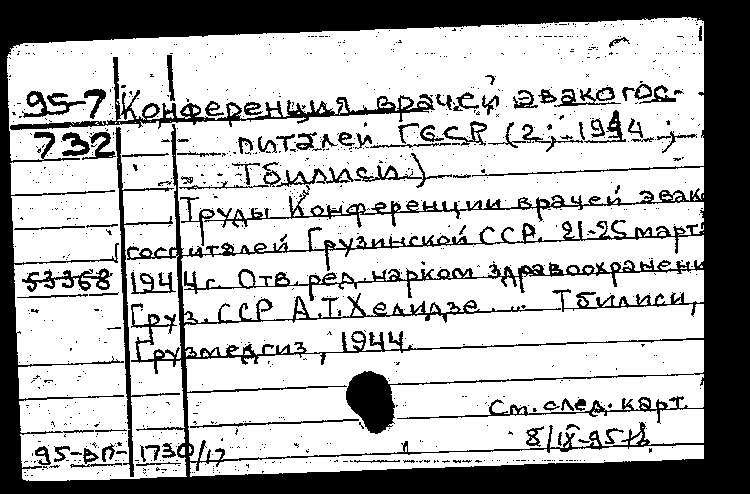 95-7 Конференция врачей эвакогос-
732 питалей ГССР (2; 1944;
Тбилиси)
Труды Конференции врачей эвак
госпиталей Грузинской ССР. 21-25 март
53368 1944 г. Отв. ред. нарком здравоохранени
Груз. ССР А.Т. Хелидзе ... Тбилиси,
Грузмедгиз, 1944.
См. след. карт.
95-ВП- 1730/17 8/IX-95